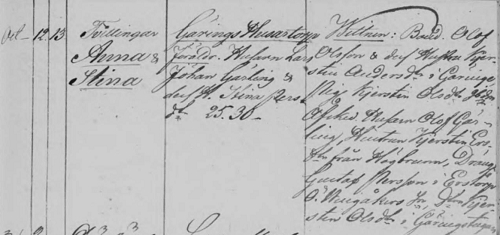 Oct. 12. 13
Tvillingar
Anna &
Stina
Gärings Husartorp
Föräldr. Husarn Lars
Johan Gärling &
des H. Stina Pers
dr 25. 30
Wittnen: Bond. Olof
Olsson & des Hustru Kjer-
stin Andersdr i Gäringe
Pig. Kjerstin Olsdr
Afsked. Husarn Olof Gär-
ling Hustrun Kjerstin Ers
dr från Högbrunn, Dräng
Gustaf Persson i
Kjer-
stin Olsdr i Gäringstorp